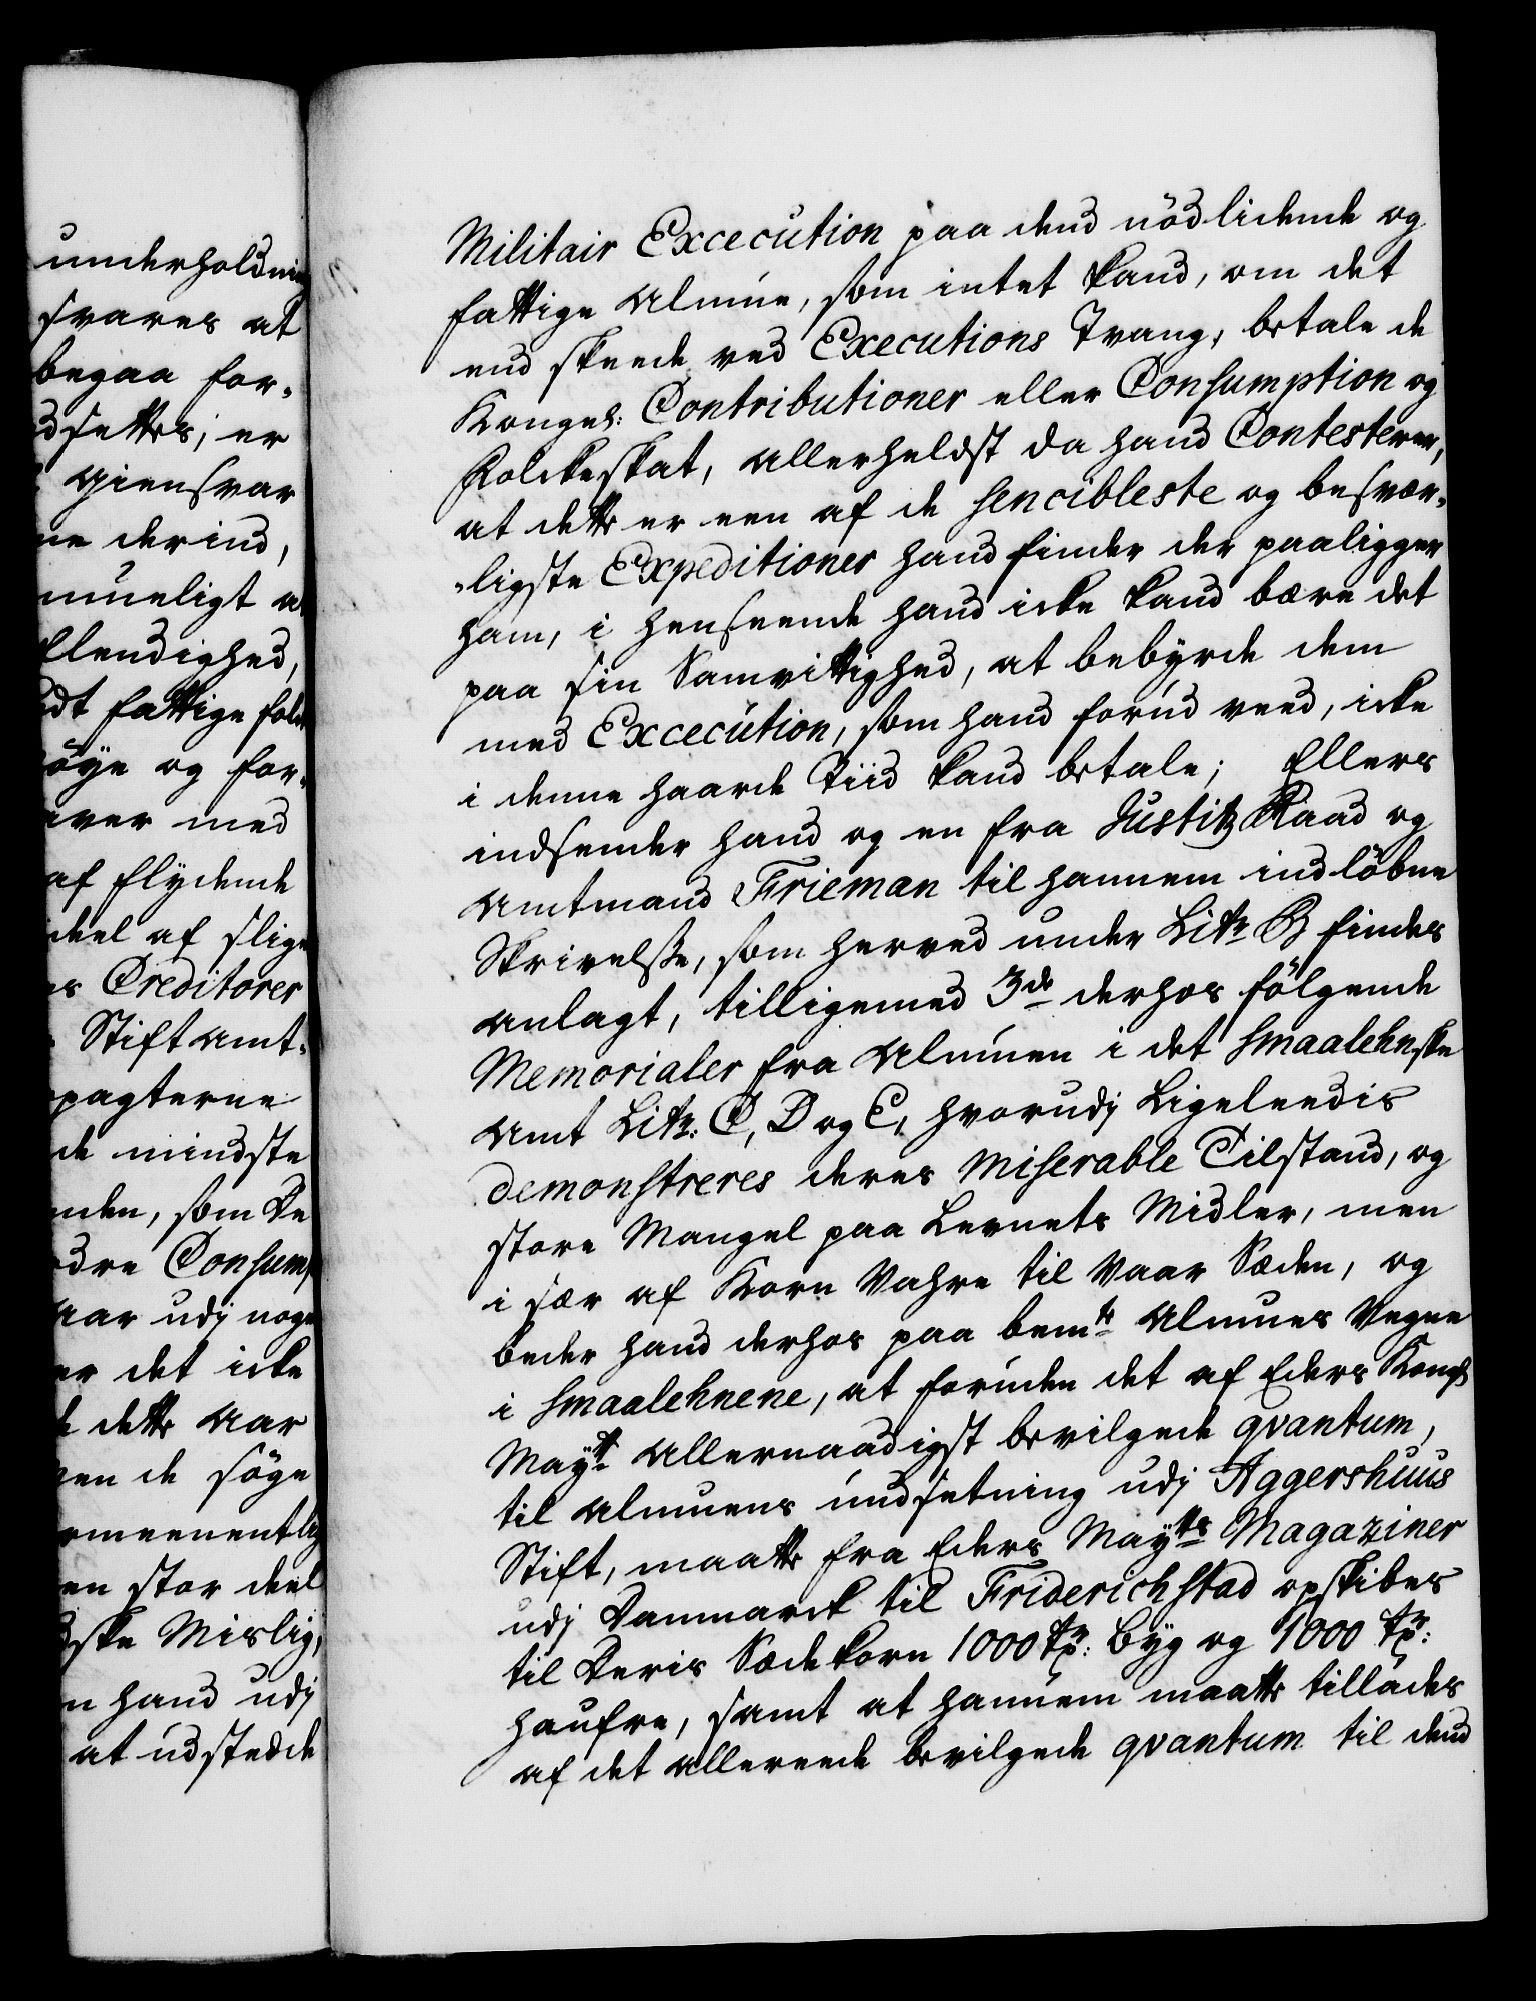 underholdnin
svares at
begaa for-
dsettes; er
giensvar
ne derind,
mueligt a
Elendighed,
dt fattige folck
øye og for-
over med
af flydende
deel af slige
es Creditorer
Stiftamt-
pagterne
de mindste
nden, som De
dre Consum
aar udj noge
er det icke
dette Aar
en de søge
ormeenentlig
en stor deel
ske Mislig,
n hand udj
at udstedde
Militair Excecution paa dend nödlidende og
fattige Almue, som intet kand, om det
end skeede ved Executions Tvang, betale de
Kongel: Contributioner eller Consumption og
Folckeskat, allerheldst da hand Contesterer,
at dette er een af de sencibleste og besvær-
-ligste Expeditioner hand finder der paaligger
ham, i henseende hand icke kand bære det
paa sin Samvittighed, at bebyrde dem
med Excecution, som hand forud veed, icke
i denne haarde Tiid kand betale; Ellers
indsender hand og en fra Justitz Raad og
Amtmand Frieman til hannem indløbne
Skrivelsse, som herved under Litr B findes
anlagt, tilligemed 3de derhos følgende
Memorialer fra Almuen i det Smaalehnske
Amt Litr: C, D og E, hvorudj Ligeleedis
demonstreres deres Miserable Tilstand, og
store Mangel paa Levnets Midler, men
i sær af Korn Vahre til Vaar Sæden, og
beder hand derhos paa bemte Almues Vegne
i Smaalehnene, at foruden det af Eders Kongl
Mayt Allernaadigst bevilgede qvantum,
til Almuens undsetning udj Aggershuus
Stift, maatte fra Eders Mayts Magaziner
udj Danmarck til Friderichstad opskibes
til Deris Sædekorn 1000 Tr: Byg og 1000 Tr:
haufre, samt at hannem maatte tillades
af det allereede bevilgede qvantum til dend